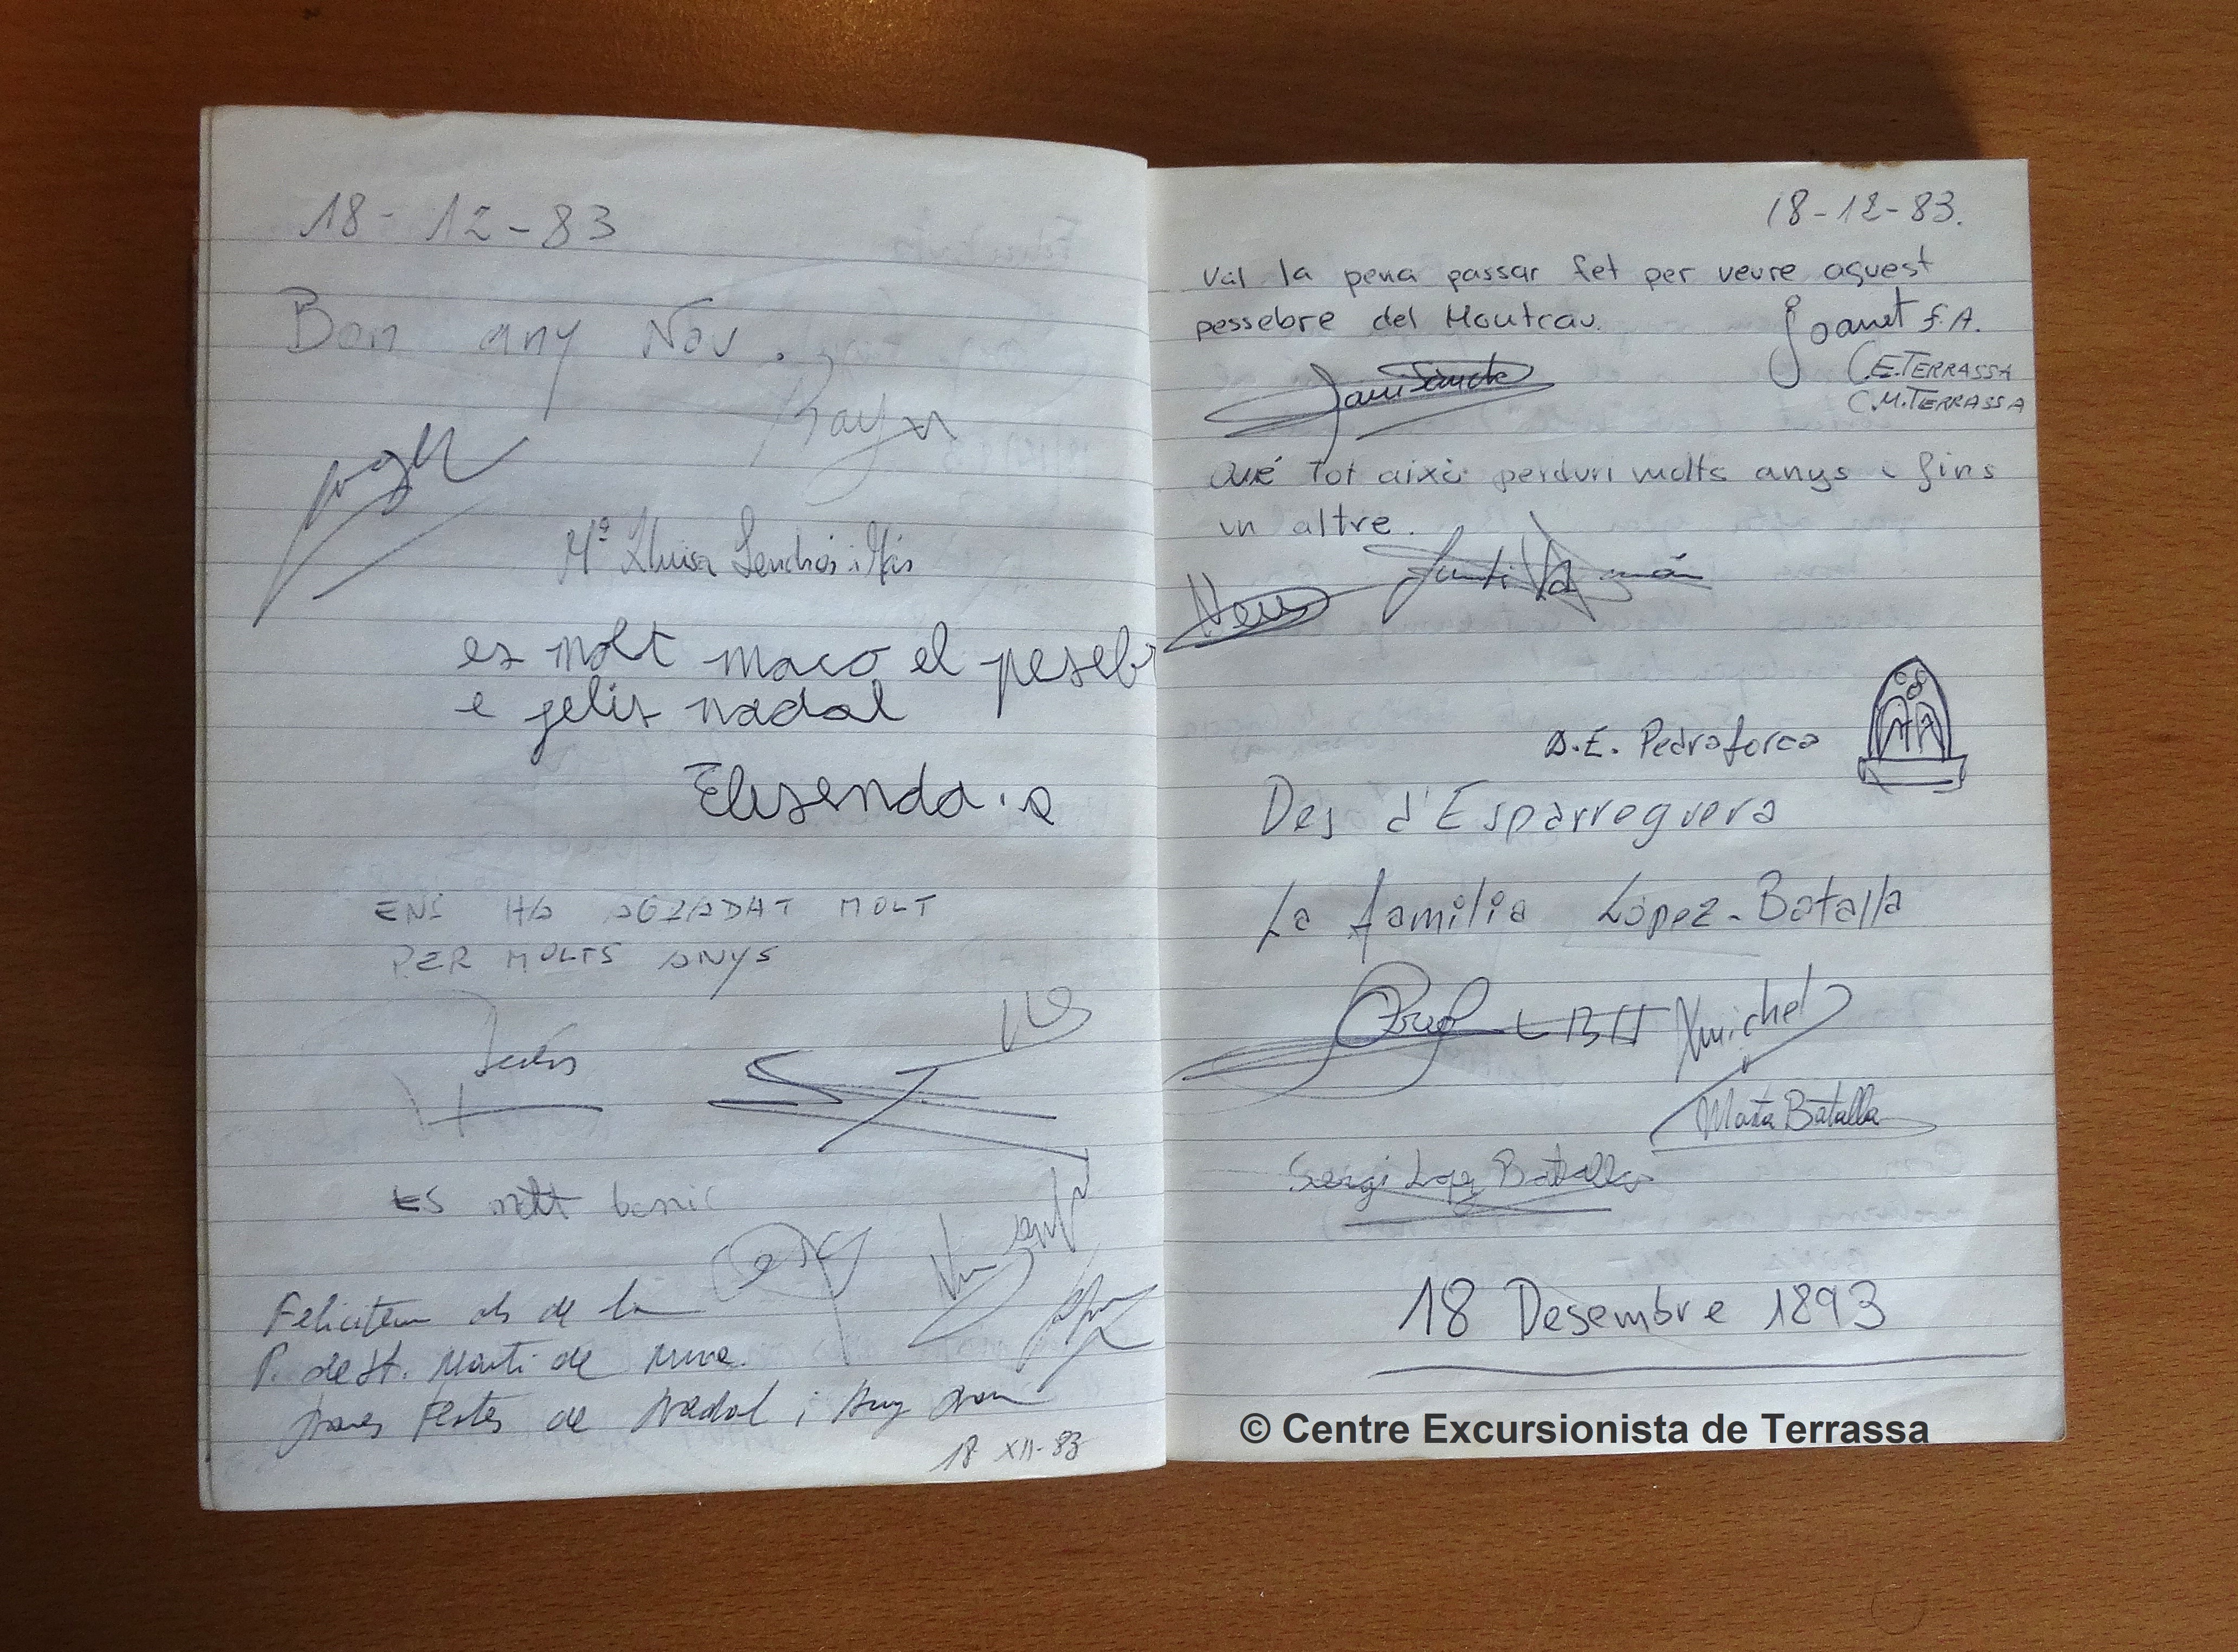 18-12-83
Bon any Nou.
Mª Lluisa
es molt maco el peseb
e felis nadal
Elisenda.
ENS HA AGRADAT MOLT
PER MOLTS ANYS
Jesús
ES molt bonic
Felicitem als de la
P. de St. Martí de
Bones Festes de Nadal i Any Nou
18 XII-83
18-12-83.
Val la pena passar fet per veure aquest
pessebre del Montcau.
Joanet F.A.
C.E. TERRASSA
C.M. TERRASSA
Qué Tot aixó perduri molts anys i fins
un altre.
Neus
A.E. Pedraforca
Des d'Esparreguera
La família López-Batalla
Maria Batalla
Sergi Lopez Batalla
18 Desembre 1893
© Centre Excursionista de Terrassa